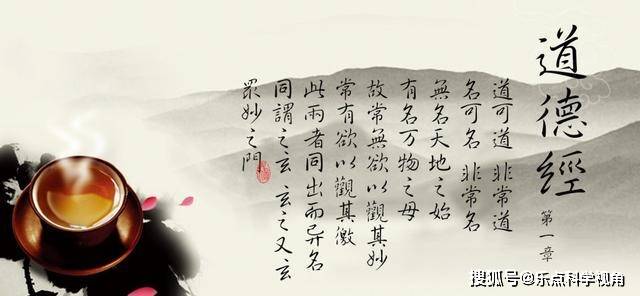 道德經
第一章
道可道 非常道
名可名 非常名
無名天地之始
有名万物之母
故常無欲以觀其妙
常有欲以觀其徼
此兩者同出而异名
同謂之玄 玄之又玄
眾妙之門
搜狐号@乐点科学视角